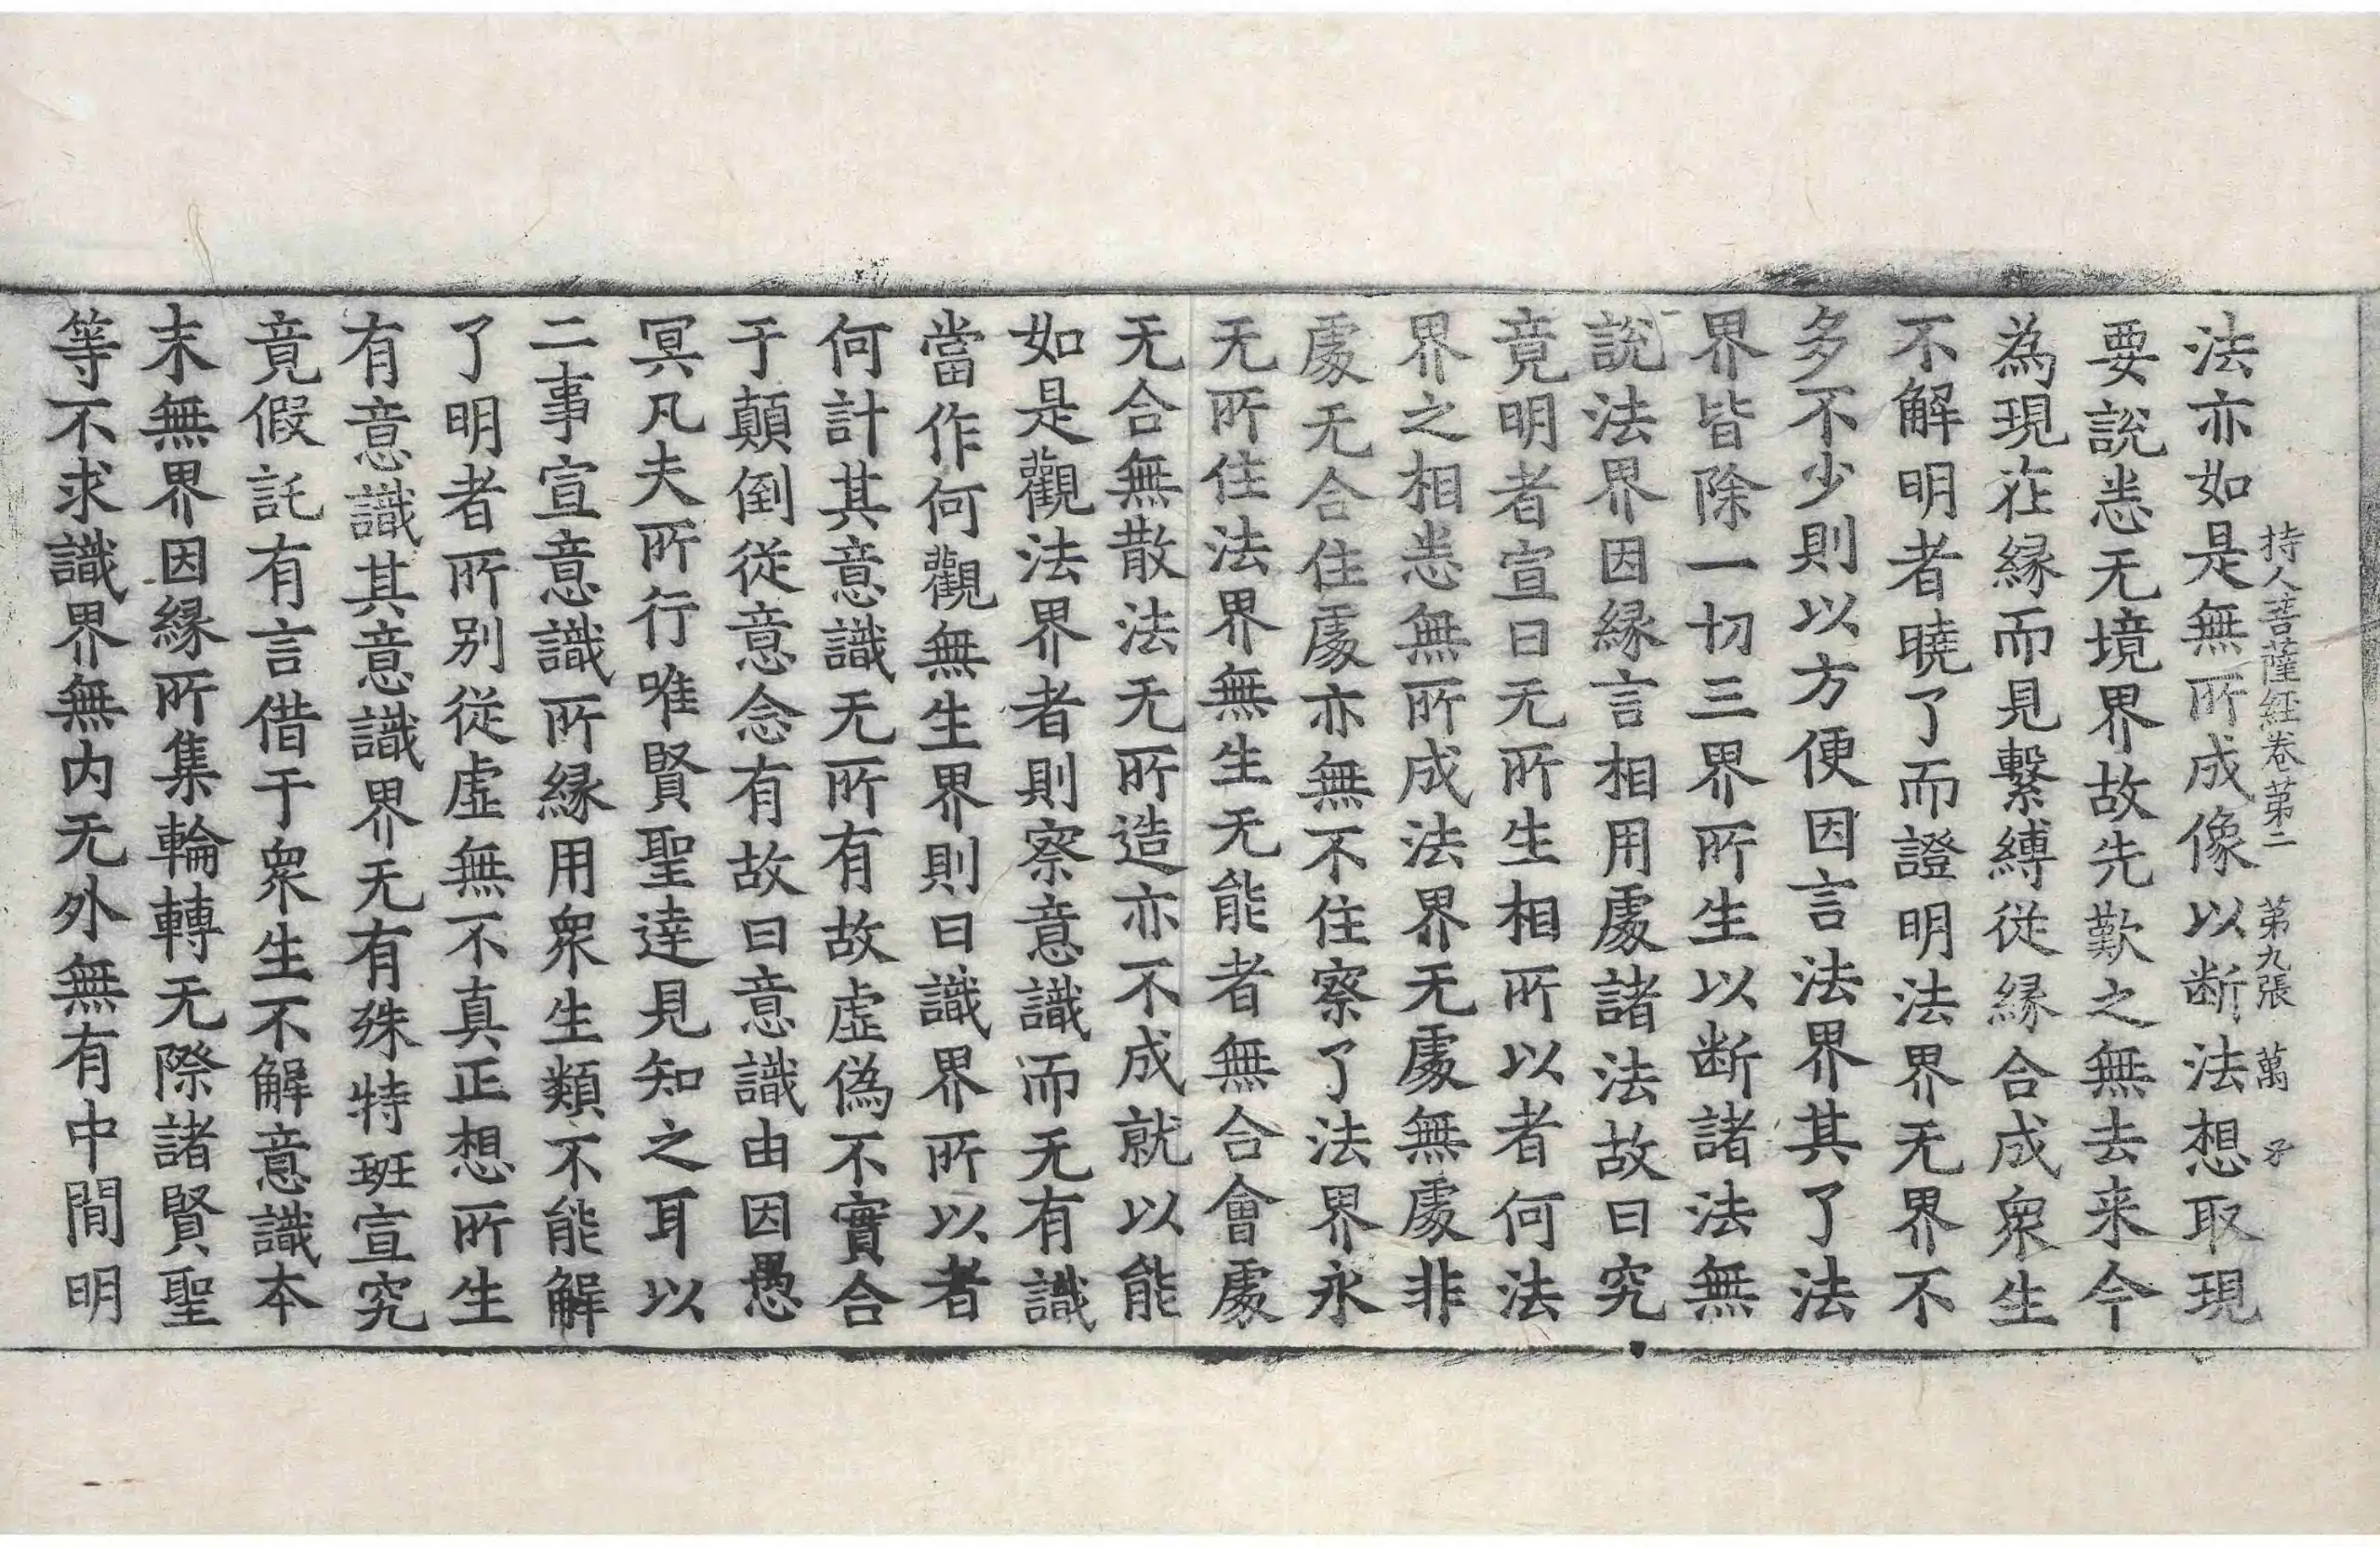 持人菩薩經卷第二　第九張　萬
法亦如是無所成像以断法想取現
要說恙无境界故先歎之無去来今
為現在縁而見繫縛從縁合成衆生
不解明者曉了而證明法界无界不
多不少則以方便因言法界其了法
界皆除一切三界所生以断諸法無
說法界因縁言相用處諸法故曰究
竟明者宣曰无所生相所以者何法
界之相恙無所成法界无處無處非
處无合住處亦無不住察了法界永
无所住法界無生无能者無合會處
无合無散法无所造亦不成就以能
如是觀法界者則察意識而无有識
當作何觀無生界則曰識界所以者
何計其意識无所有故虛偽不實合
于顛倒從意念有故曰意識由因愚
冥凡夫所行唯賢聖達見知之耳以
二事宣意識所縁用衆生類不能解
了明者所別從虛無不真正想所生
有意識其意識界无有殊特班宣究
竟假託有言借于衆生不解意識本
末無界因縁所集輪轉无際諸賢聖
等不求識界無内无外無有中間明